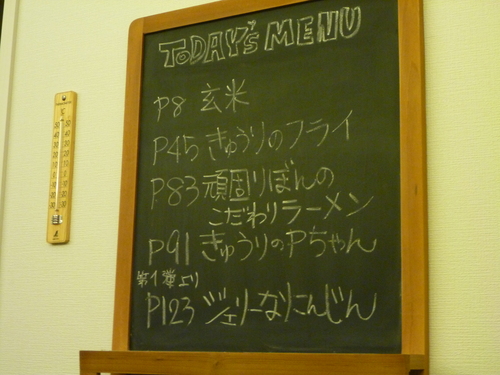 TODAY's MENU
P8 玄米
P45 きゅうりのフライ
P83 頑固りぼんの
こだわりラーメン
P91 きゅうりのPちゃん
第1巻より
P123 ジェリーなにんじん